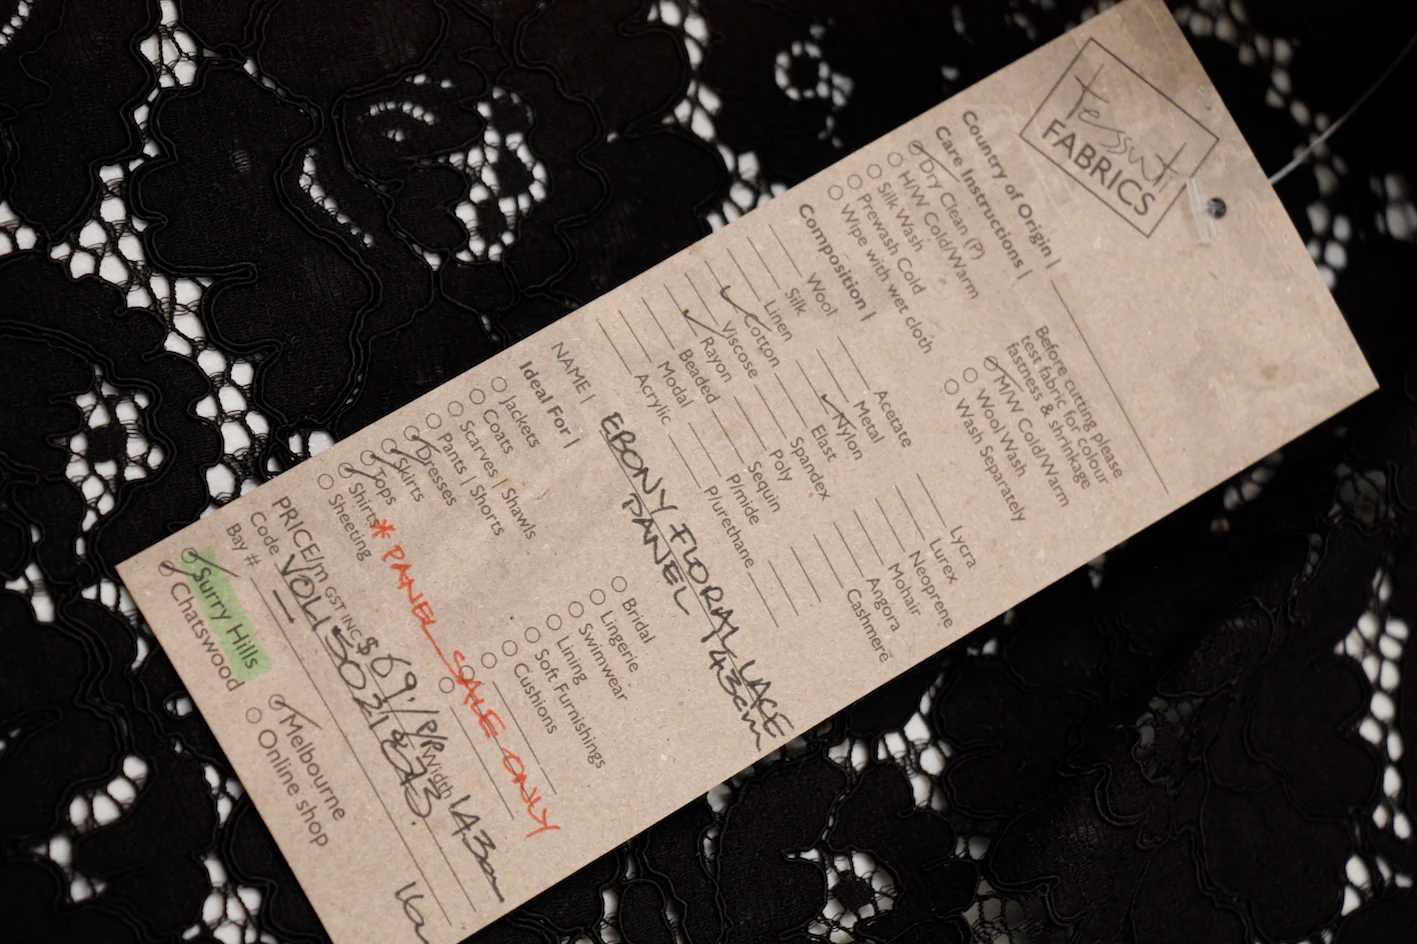 tessuti
FABRICS
Country of Origin |
Care Instructions |
Dry Clean (P)
H/W Cold/Warm
Silk Wash
Prewash Cold
Wipe with wet cloth
Before cutting please
test fabric for colour
fastness & shrinkage
M/W Cold/Warm
Wool Wash
Wash Separately
Composition |
Wool
Silk
Linen
Cotton
Viscose
Rayon
Beaded
Modal
Acrylic
Acetate
Metal
Nylon
Elast
Spandex
Poly
Sequin
P/mide
P/urethane
Lycra
Lurex
Neoprene
Mohair
Angora
Cashmere
NAME | EBONY FLORAL LACE
PANEL 143cm
Ideal For |
Jackets
Coats
Scarves | Shawls
Pants | Shorts
Dresses
Skirts
Tops
Shirts
Sheeting
Bridal
Lingerie
Swimwear
Lining
Soft Furnishings
Cushions
* PANEL SALE ONLY
PRICE/m GST INC $ 69./P/R Width 143cm
Code
Bay #
Surry Hills
Chatswood
Melbourne
Online shop